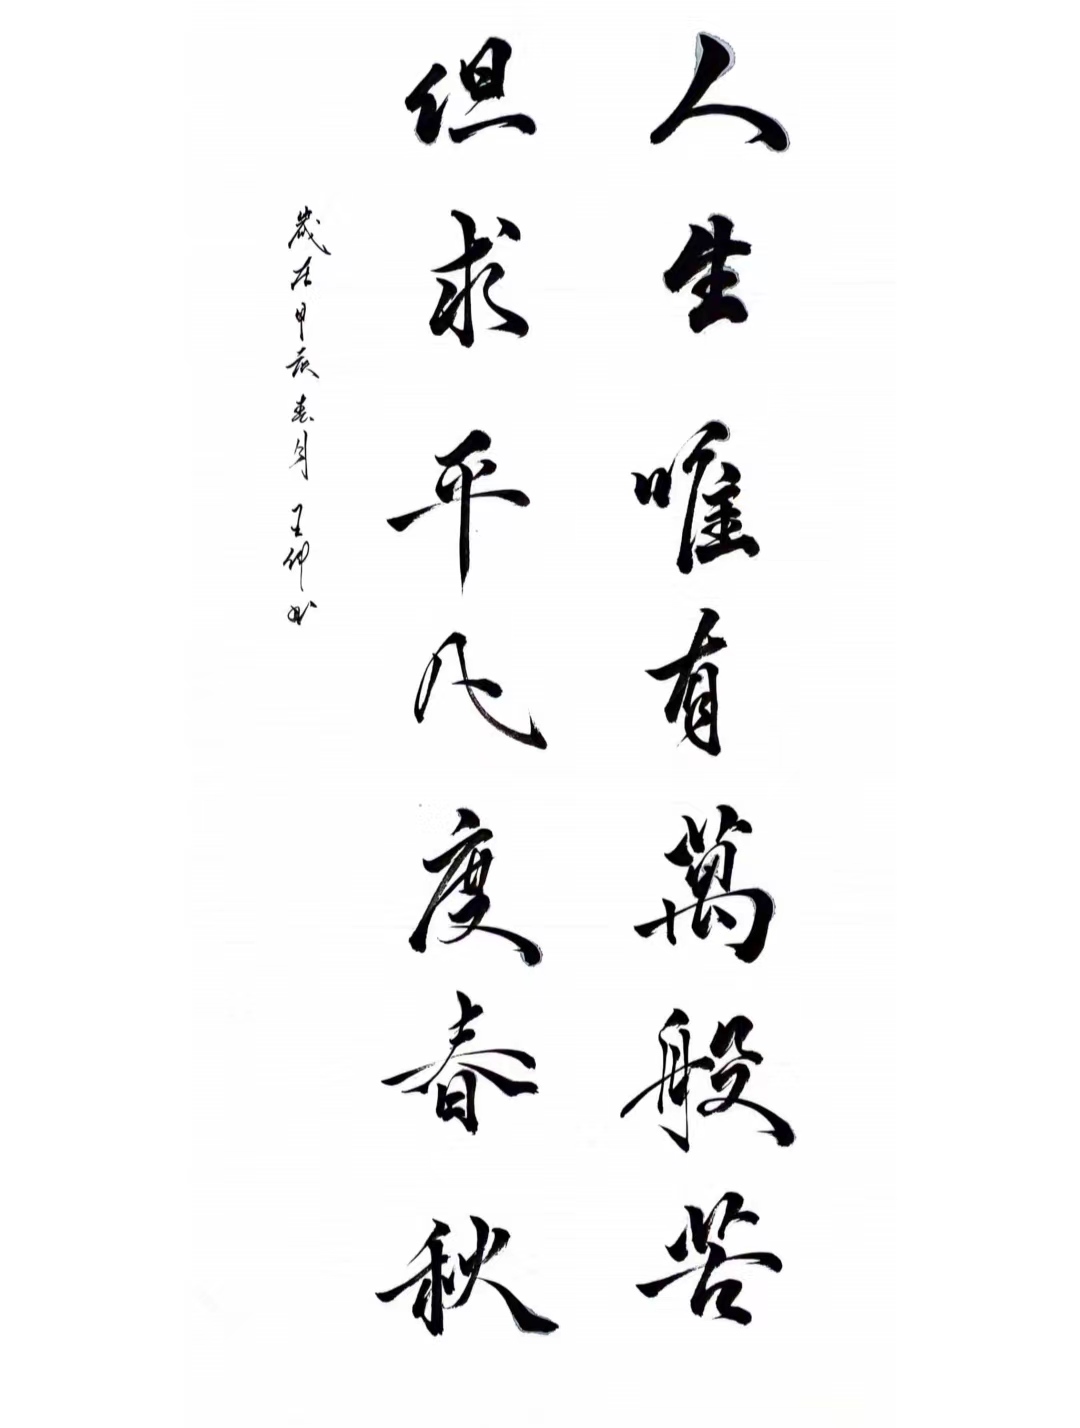 人生唯有萬般苦
但求平凡度春秋
歲在甲辰春月 王书